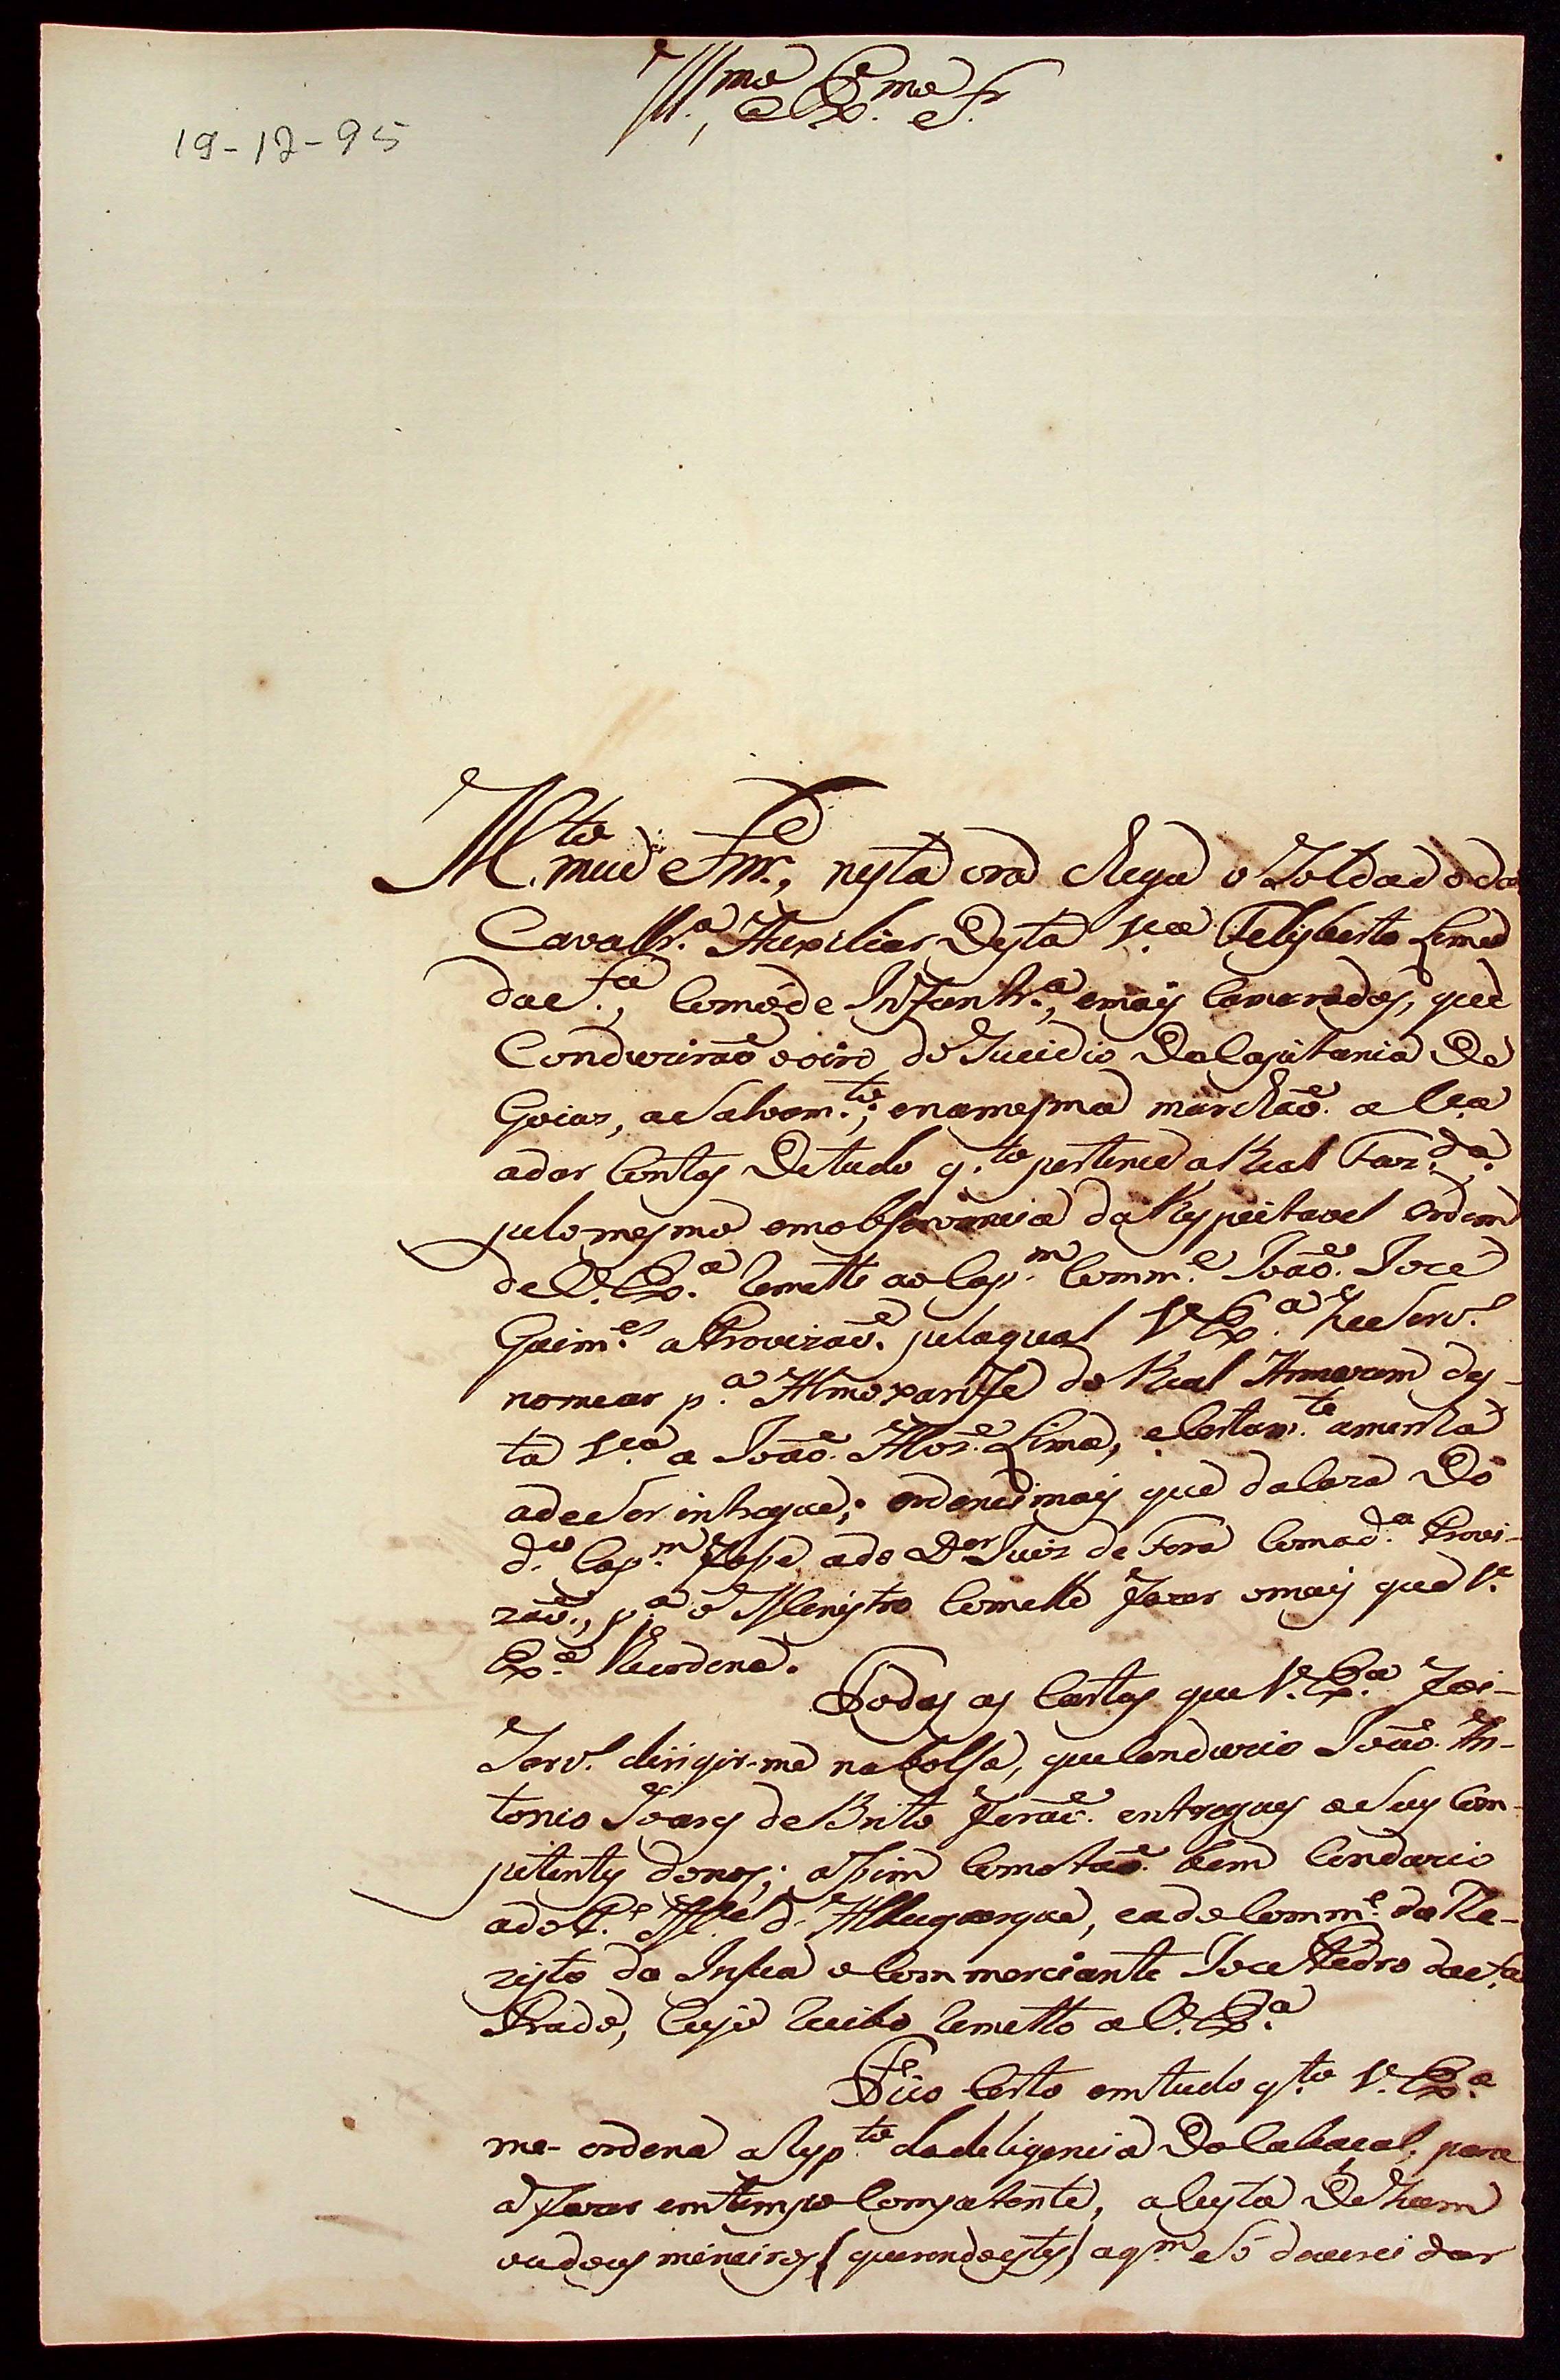 Ill.mo e Ex.mo Sr.
19-12-95
M.to meu Snr., nesta ora chega o Soldado da
Cavallr.a Auxiliar Desta V.a Felisberto Lima
da S.a, Como de Infantr.a, emais Camaradas, que
Conduzirão o oiro do Sucidio Da Capitania De
Goiaz, a Salvam.to; enamesma marchão a
adar Contas Detudo q.to pertence a Real Faz.da:
pelo mesmo emobservancia da Respeitavel ordem
de V. Ex.a Remetti ao Cap.m Comm.e João Jocé
Guim.es a Provizão pelaqual V. Ex.a Servi
nomear p.a Almoxarife do Real Armazem des-
ta V.a a João Lima, e Certam.te amenhã
adeeSer intregue; ordenei mais que daCaza Do
d.o Cap.m Fosse, ado D.or Juiz de Fora Coma d.a Provi-
zão, p.a o Menistro Comelle Fazer omais que V.
Ex.a Reordena.
Todas as Cartas que V. Ex.a Foi
Servi. dirigir-me naBolsa, queConduzio João An-
tonio Soares deBrito Ferão entregues aSeus Com-
petentes donos; aSim Como tão bem Conduzio
ado T.e d' Albuquerque, eado Comm.e da Re-
zisto da Insua eCommerciante Joce Pedro da S.a
Prado, Cujo Recibo Remetto a V. Ex.a
Fico Certo emtudo q.to V. Ex.a
me- ordena aResp.to dadeligencia Do Cabaçal, para
a Fazer emtempo Competente, a Custa De hum
oudous mineiros (querendo estes) aq.m Só deverei dar